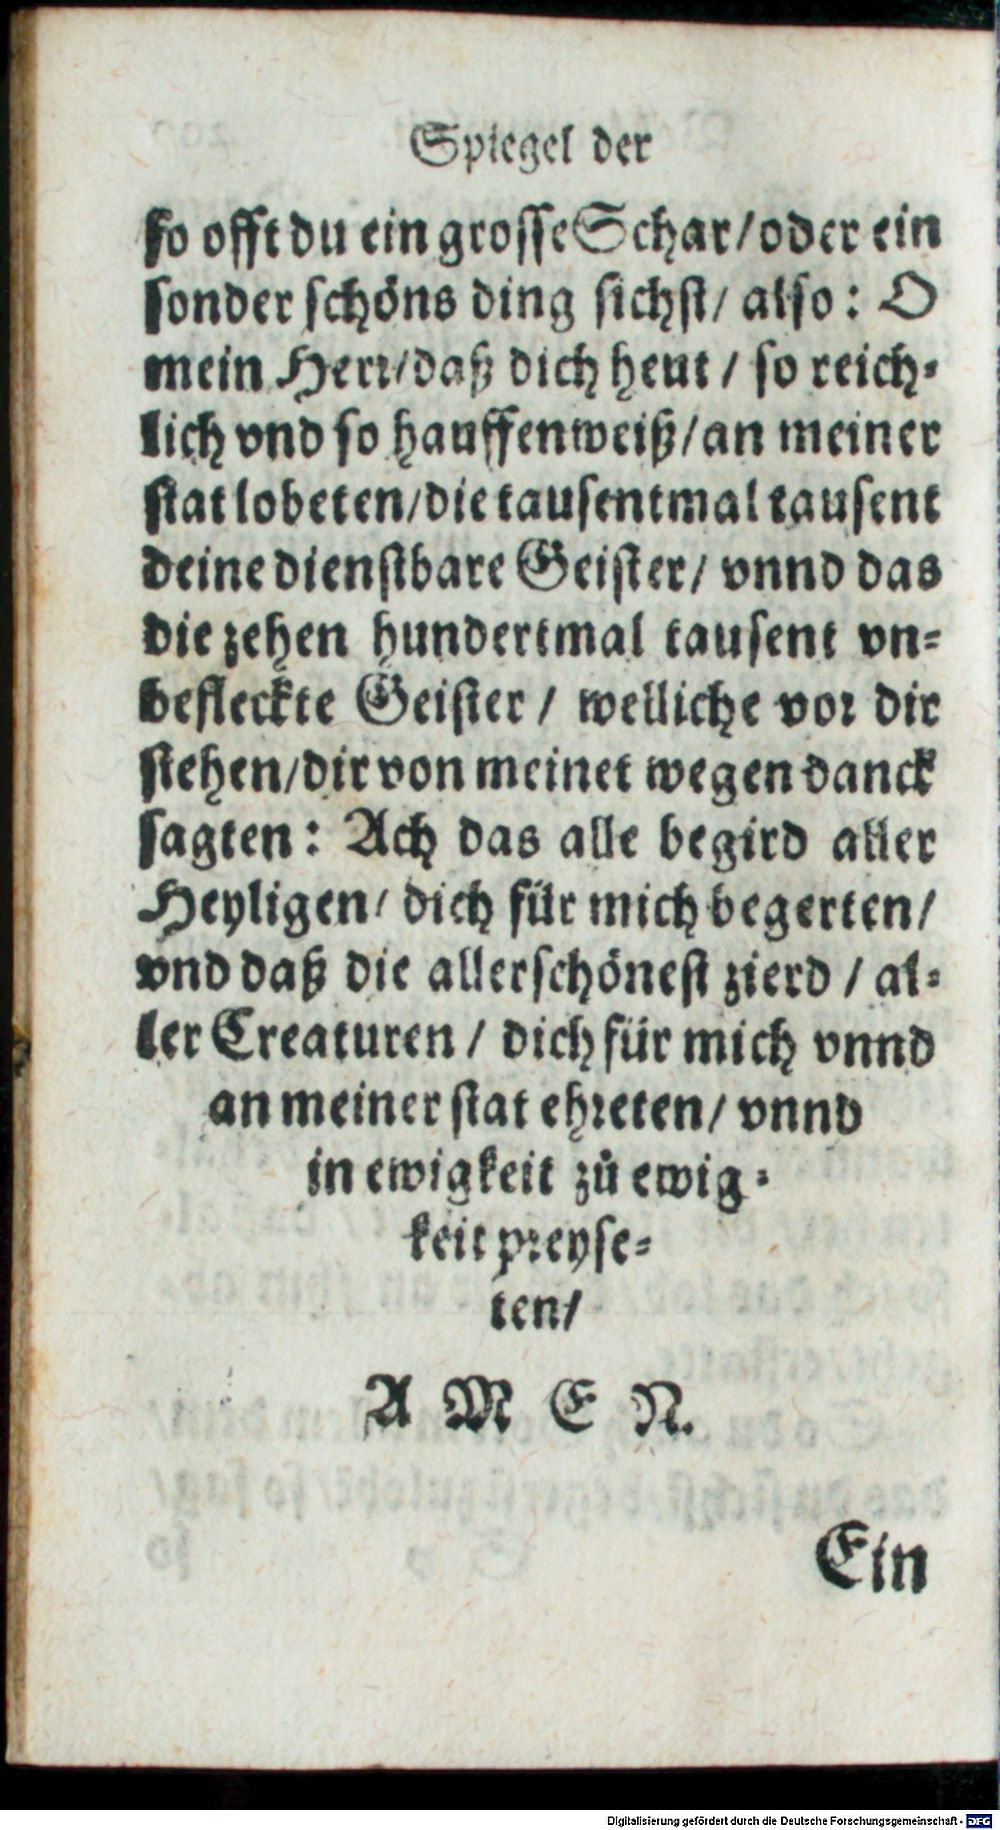 Spiegel der
so offt du ein grosse Schar/oder ein
sonder schöns ding sichst/ also: O
mein Herr/daß dich heut / so reich-
lich vnd so hauffenweiß/an meiner
stat lobeten/die tausentmal tausent
deine dienstbare Geister/ vnnd das
die zehen hundertmal tausent vn-
befleckte Geister / welliche vor dir
stehen/dir von meinet wegen danck
sagten: Ach das alle begird aller
Heyligen/ dich für mich begerten/
vnd daß die allerschönest zierd / al-
ler Creaturen / dich für mich vnnd
an meiner stat ehreten/ vnnd
in ewigkeit zů ewig-
keit preyse-
ten/
A M E N.
Ein
Digitalisierung gefördert durch die Deutsche Forschungsgemeinschaft - DFG